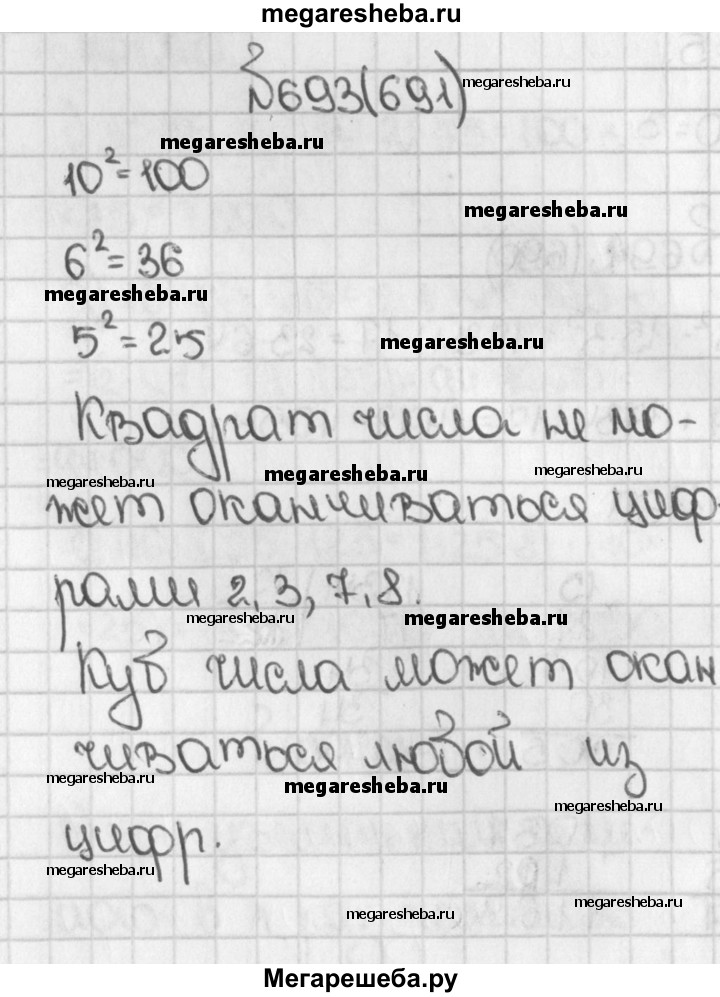 megaresheba.ru
№693(691)
megaresheba.ru
megaresheba.ru
10²=100
megaresheba.ru
6²=36
megaresheba.ru
5²=25
megaresheba.ru
Квадрат числа не мо-
megaresheba.ru
megaresheba.ru
megaresheba.ru
жет оканчиваться циф-
рами 2,3,7,8.
megaresheba.ru
megaresheba.ru
Куб числа может окан
чиваться любой из
megaresheba.ru
megaresheba.ru
megaresheba.ru
цифр.
megaresheba.ru
megaresheba.ru
megaresheba.ru
Мегарешеба.ру